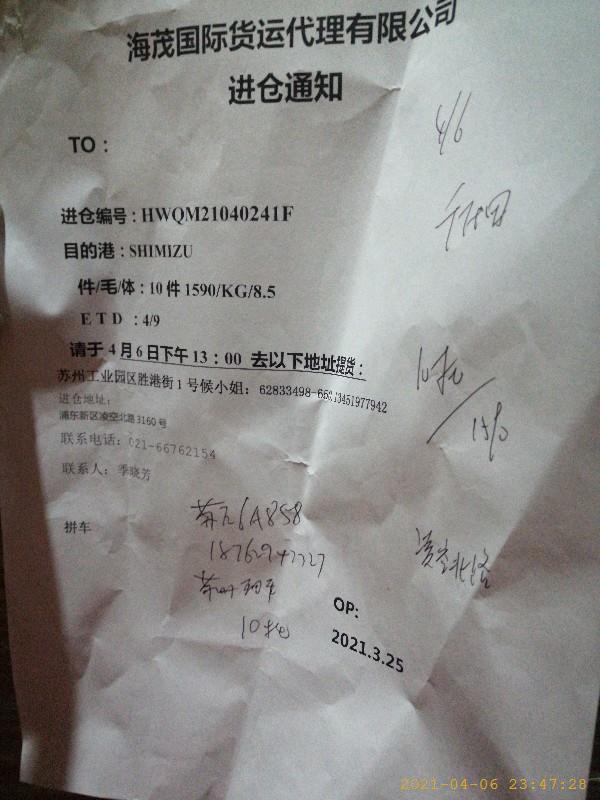 海茂国际货运代理有限公司
进仓通知
4/6
TO：
进仓编号：HWQM21040241F
目的港：SHIMIZU
件/毛/体：10件 1590/KG/8.5
ETD：4/9
请于4月6日下午13：00 去以下地址提货：
苏州工业园区胜港街1号候小姐：62833498-66 13451977942
进仓地址：
浦东新区凌空北路3160号
联系电话：021-66762154
联系人：季晓芳
10托
拼车
凌空北路
10托
OP:
2021.3.25
2021-04-06 23:47:28